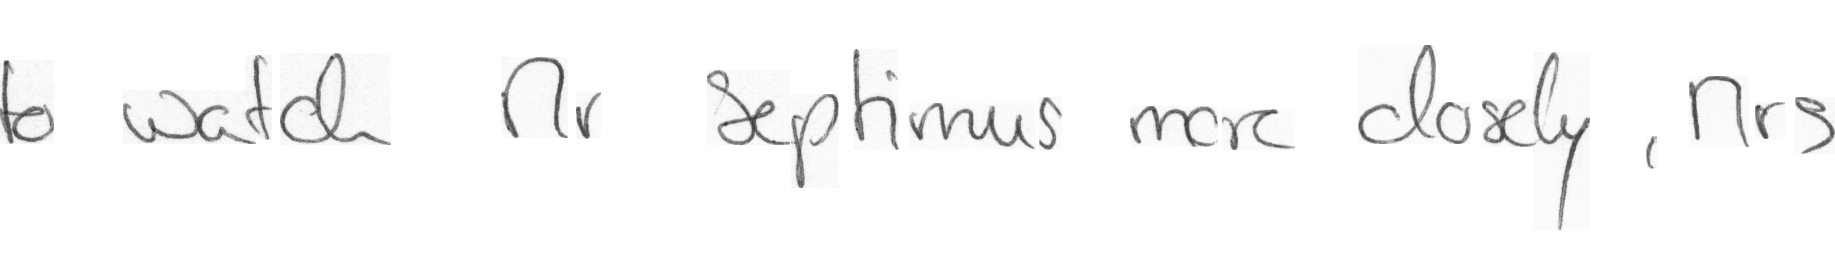 to watch Mr Septimus more closely, Mrs